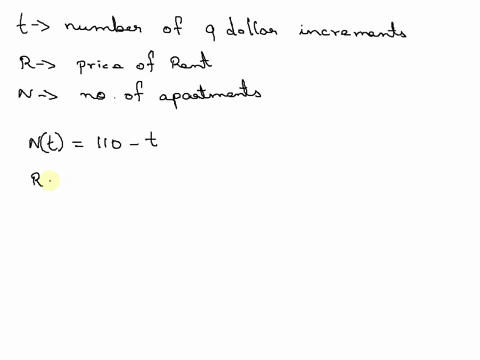 t -> number of 9 dollar increments
R -> price of Rent
N -> no. of apartments
N(t) = 110 - t
R